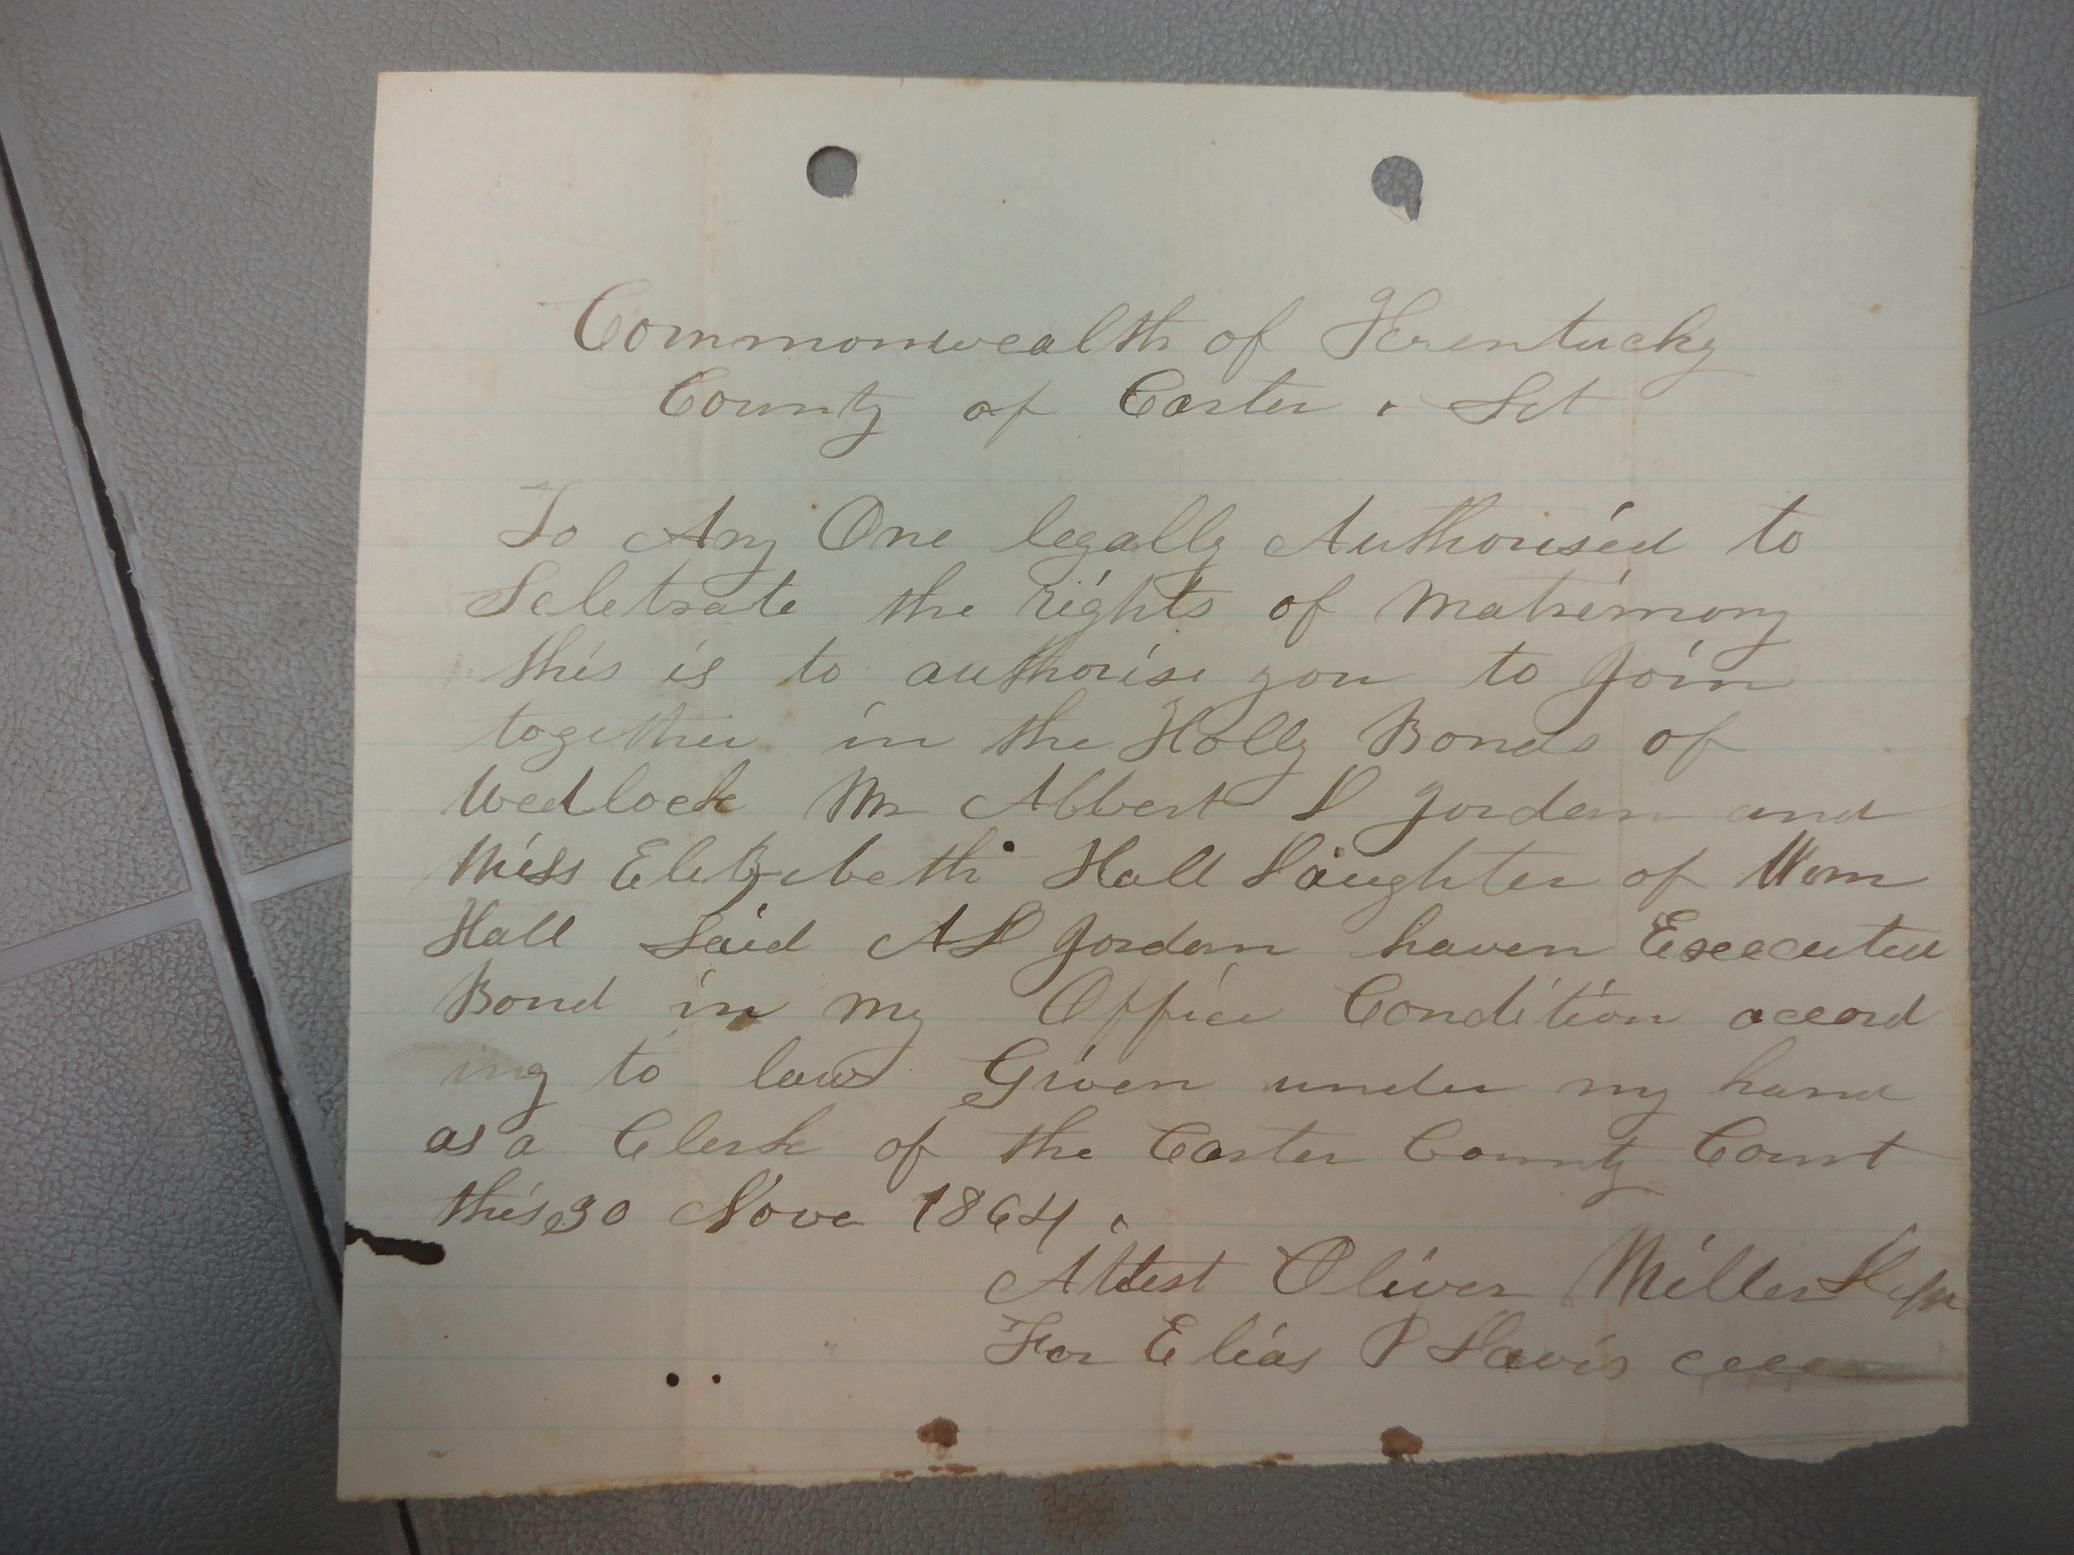 Commonwealth of Kentucky
County of Carter . Sct
To Any One legally Authorised to
Selebrate the rights of Matrimony
this is to authorise you to Join
together in the Holly Bonds of
Wedlock Mr Albert D Jordan and
Miss Elizebeth Hall Daughter of Wm
Hall Said AD Jordan haven Exeecuted
Bond in my Office Condition accord
ing to law Given under my hand
as a Clerk of the Carter County Court
this 30 Nove 1864 .
Attest Oliver Miller Dept
For Elias P Davis ccc